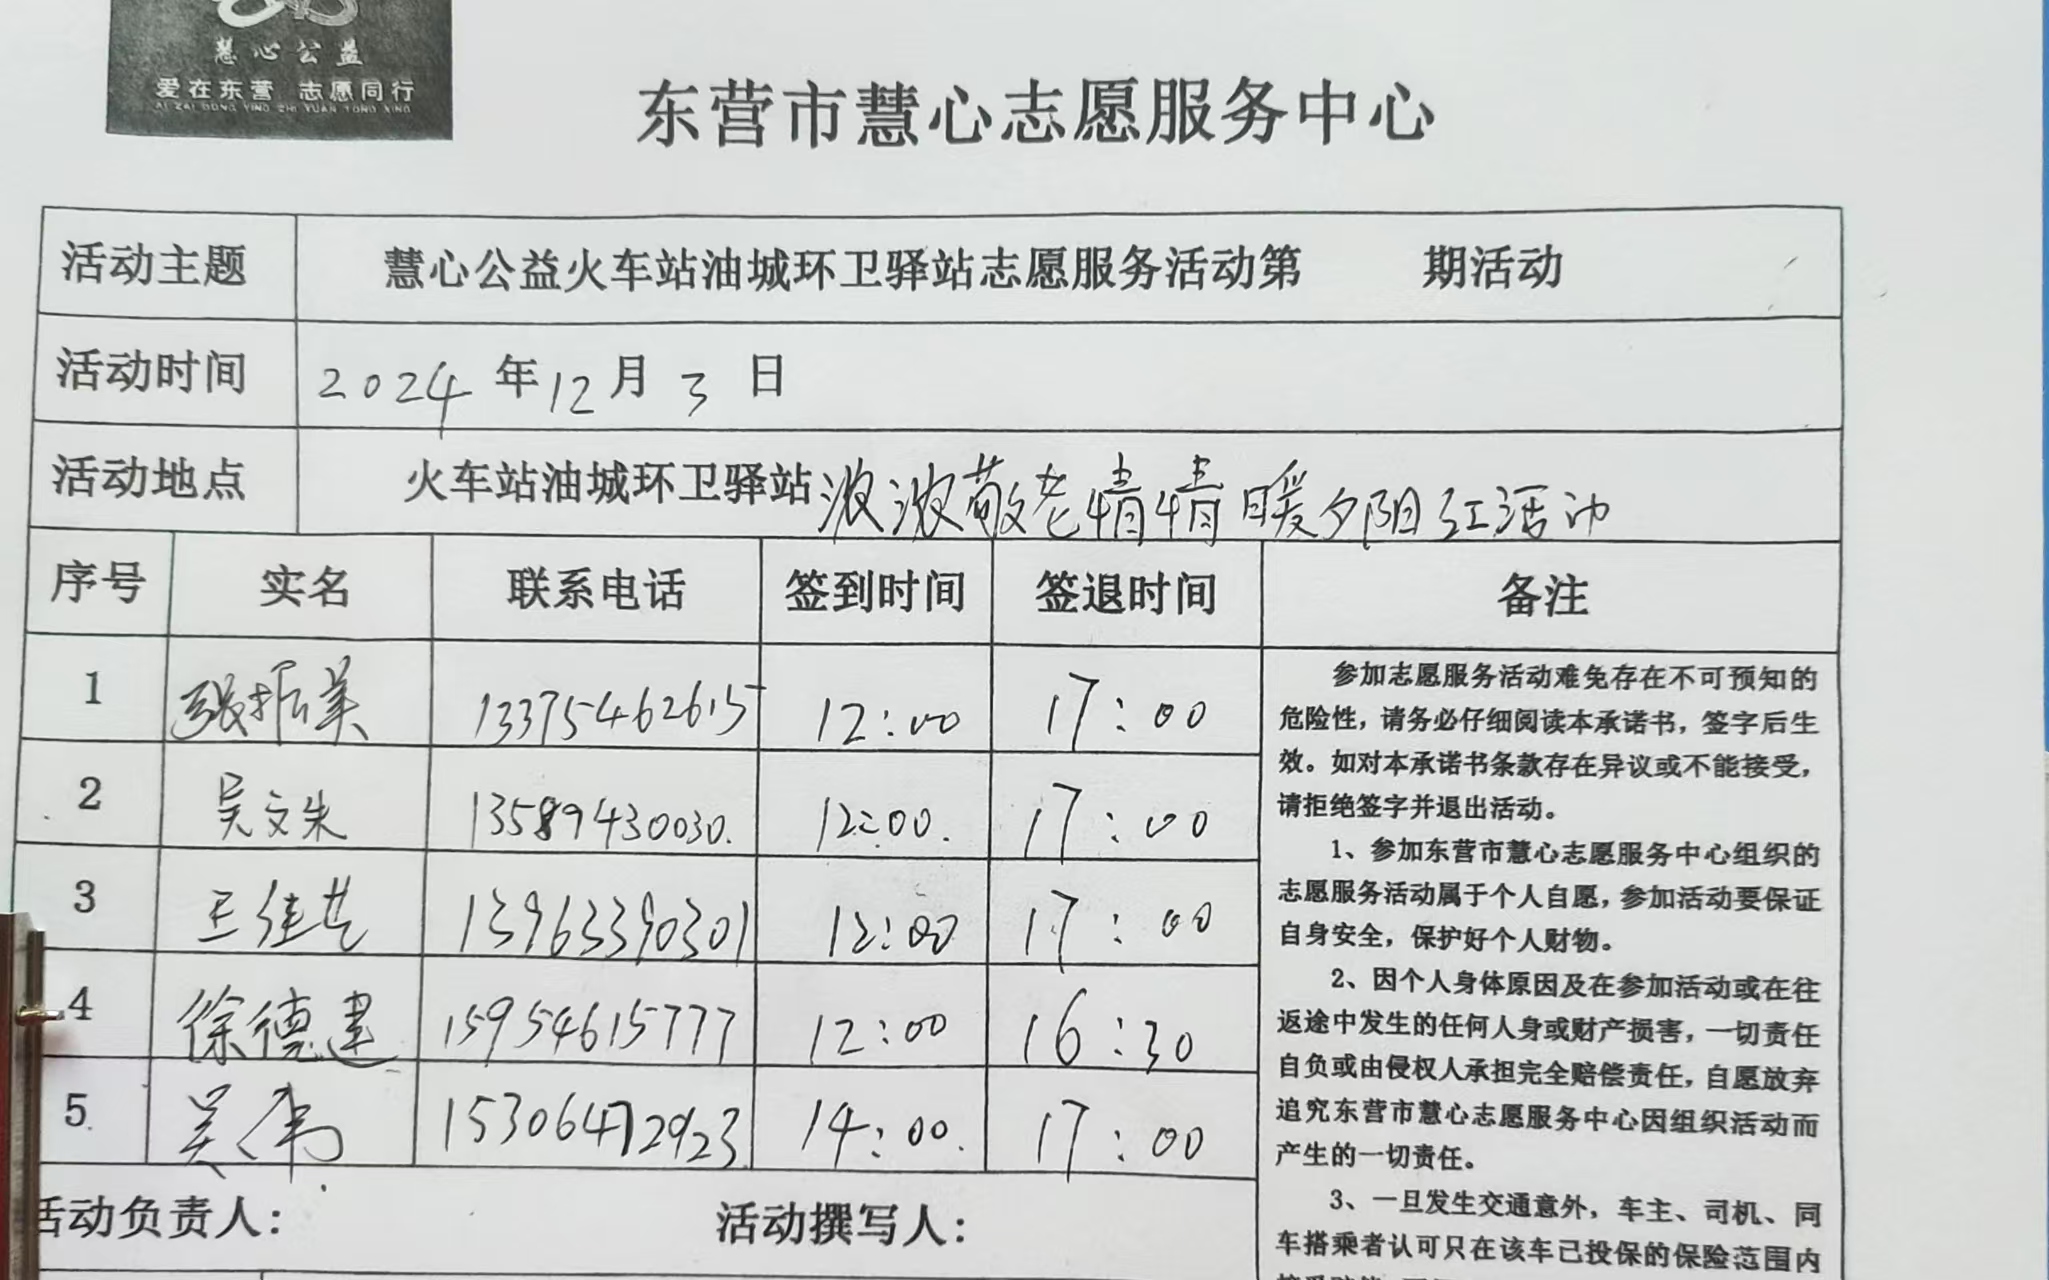 慧心公益
爱在东营 志愿同行
AI ZAI DONG YING ZHI YUAN TONG XING
东营市慧心志愿服务中心
活动主题 慧心公益火车站油城环卫驿站志愿服务活动第 期活动
活动时间 2024 年 12 月 3 日
活动地点 火车站油城环卫驿站 浓浓敬老情情暖夕阳红活动
序号 实名 联系电话 签到时间 签退时间 备注
1 张振美 13375462615 12:00 17:00
2 吴文朱 13589430030. 12:00. 17:00
3 王佳 13963390301 12:00 17:00
4 徐德建 15954615777 12:00 16:30
5. 吴伟 15306472923 14:00. 17:00
活动负责人: 活动撰写人:
参加志愿服务活动难免存在不可预知的
危险性，请务必仔细阅读本承诺书，签字后生
效。如对本承诺书条款存在异议或不能接受，
请拒绝签字并退出活动。
1、参加东营市慧心志愿服务中心组织的
志愿服务活动属于个人自愿，参加活动要保证
自身安全，保护好个人财物。
2、因个人身体原因及在参加活动或在往
返途中发生的任何人身或财产损害，一切责任
自负或由侵权人承担完全赔偿责任，自愿放弃
追究东营市慧心志愿服务中心因组织活动而
产生的一切责任。
3、一旦发生交通意外，车主、司机、同
车搭乘者认可只在该车已投保的保险范围内